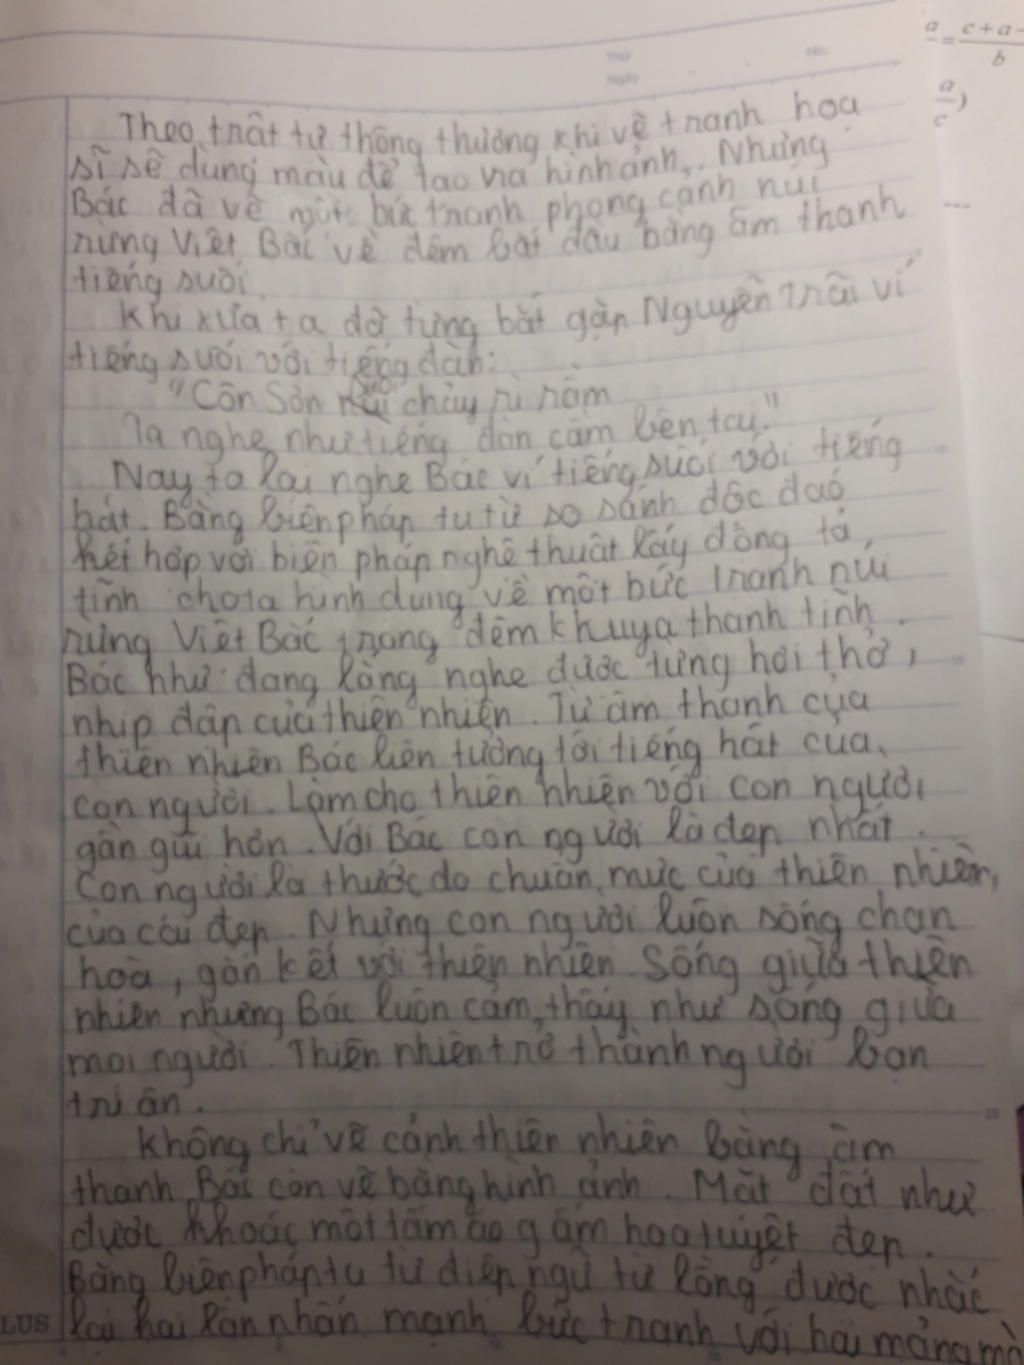 Thứ
Ngày
No.
a/c = c+a-/b
a/c)
Theo trật tự thông thường khi vẽ tranh hoạ
sĩ sẽ dùng màu để tạo ra hình ảnh. Nhưng
Bác đã vẽ một bức tranh phong cảnh núi
rừng Việt Bắc về đêm bắt đầu bằng âm thanh
tiếng suối.
Khi xưa ta đã từng bắt gặp Nguyễn Trãi ví
tiếng suối với tiếng đàn:
"Côn Sơn suối chảy rì rầm
Ta nghe như tiếng đàn cầm bên tai."
Nay ta lại nghe Bác ví tiếng suối với tiếng
hát. Bằng biện pháp tu từ so sánh độc đáo
kết hợp với biện pháp nghệ thuật lấy động tả
tĩnh cho ta hình dung về một bức tranh núi
rừng Việt Bắc trong đêm khuya thanh tĩnh.
Bác như đang lắng nghe được từng hơi thở,
nhịp đập của thiên nhiên. Từ âm thanh của
thiên nhiên Bác liên tưởng tới tiếng hát của
con người. Làm cho thiên nhiên với con người
gần gũi hơn. Với Bác con người là đẹp nhất.
Con người là thước đo chuẩn mực của thiên nhiên,
của cái đẹp. Nhưng con người luôn sống chan
hoà, gắn kết với thiên nhiên. Sống giữa thiên
nhiên nhưng Bác luôn cảm thấy như sống giữa
mọi người. Thiên nhiên trở thành người bạn
tri ân.
Không chỉ vẽ cảnh thiên nhiên bằng âm
thanh Bác còn vẽ bằng hình ảnh. Mặt đất như
được khoác một tấm áo gấm hoa tuyệt đẹp.
Bằng biện pháp tu từ điệp ngữ từ lồng được nhắc
LUS
lại hai lần nhấn mạnh bức tranh với hai mảng mà